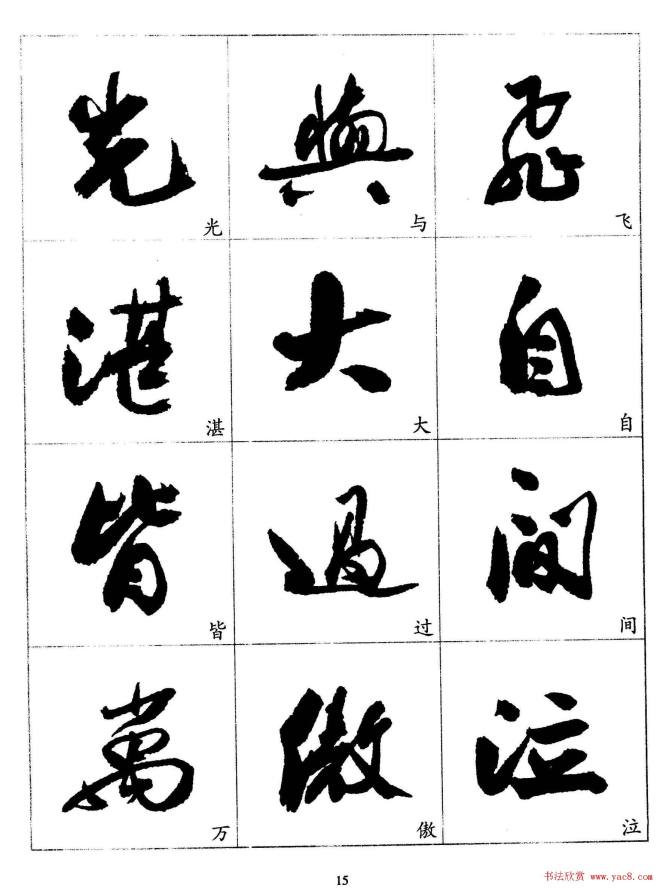 光 與 飛
光 与 飞
湛 大 自
湛 大 自
皆 過 間
皆 过 间
萬 傲 泣
万 傲 泣
15
书法欣赏 www.yac8.com